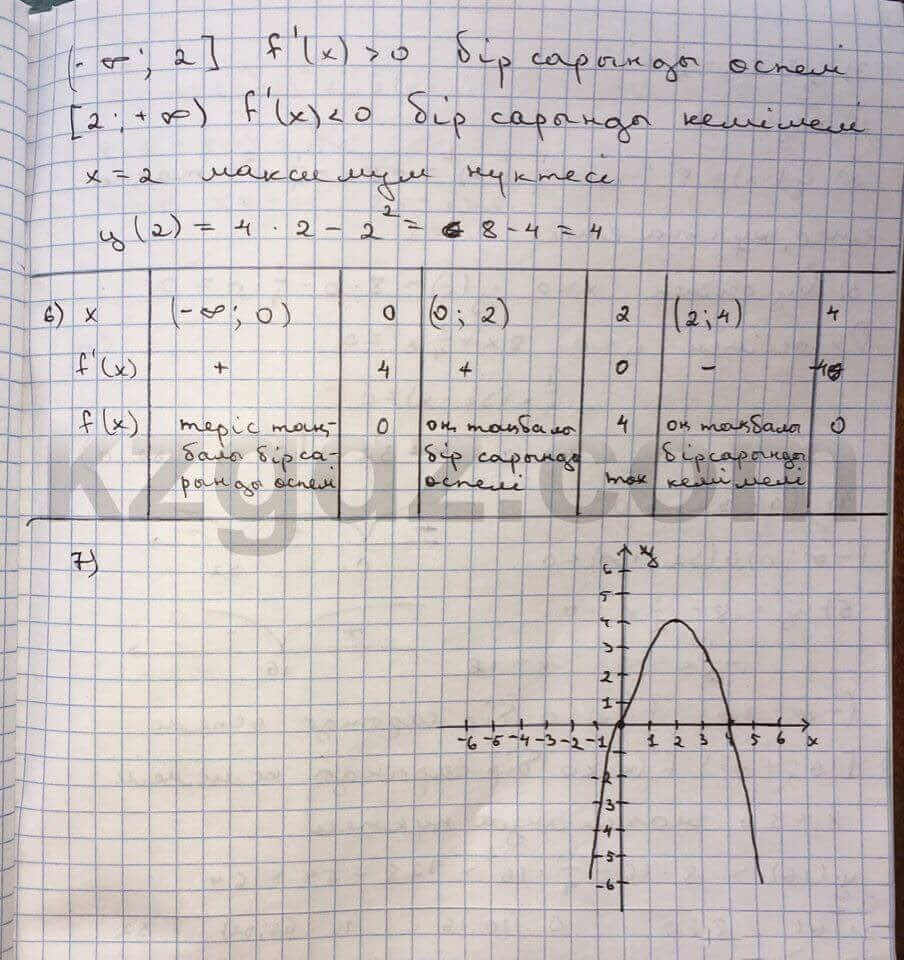 (-∞; 2] f'(x) > 0 бір сарынды өспелі
[2; +∞) f'(x) < 0 бір сарынды кемімелі
x = 2 максимум нүктесі
y(2) = 4 · 2 - 2² = 8 - 4 = 4
6) x (-∞; 0) 0 (0; 2) 2 (2; 4) 4
f'(x) + 4 + 0 - -4
f(x) теріс таң- 0 оң таңбалы 4 оң таңбалы 0
балы бір са- бір сарынды бірсарынды
рынды өспелі өспелі max кемімелі
kzgdz.com
7)
y
6
5
4
3
2
1
-6 -5 -4 -3 -2 -1 1 2 3 4 5 6 x
-2
-3
-4
-5
-6